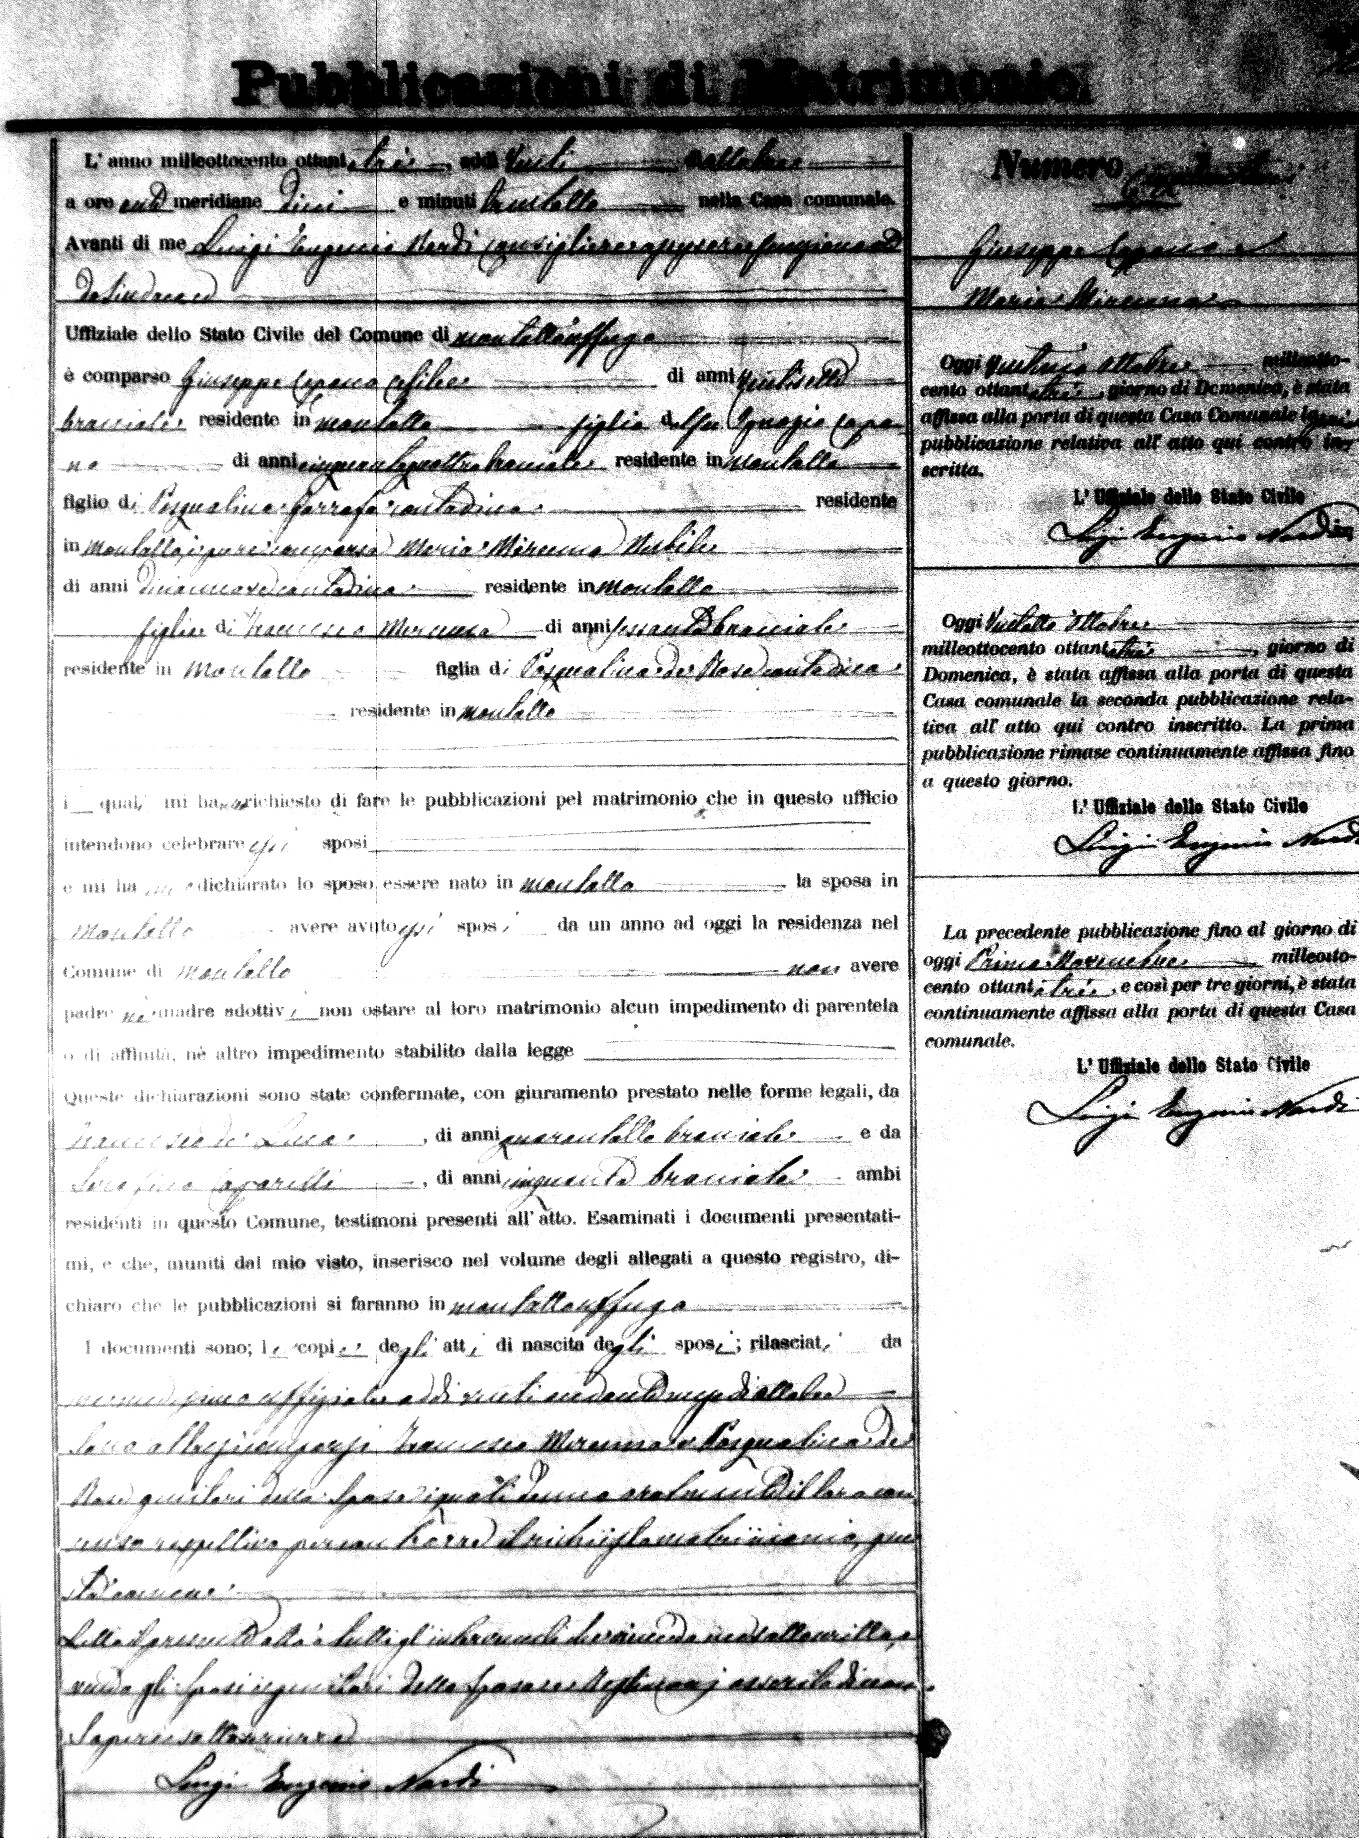 Pubblicazioni di Matrimonio
L'anno milleottocento ottantatrè, addì venti Ottobre
a ore anti meridiane dieci e minuti trentotto nella Casa comunale.
Avanti di me Luigi Eugenio Nardi Consigliere
da Sindaco
Uffiziale dello Stato Civile del Comune di montaltouffugo
è comparso Giuseppe Capano celibe di anni ventisette
bracciale residente in montalto figlio del fu Ignazio Capa
no di anni cinquantaquattro bracciale residente in montalto
figlio di Pasqualina contadina residente
in montalto, è pure comparsa Maria Mirenna Nubile
di anni diciannove contadina residente in montalto
figlia di Francesco Mirenna di anni sessanta bracciale
residente in montalto figlia di Pasqualina de Rose contadina
residente in montalto
i quali mi hanno richiesto di fare le pubblicazioni pel matrimonio che in questo ufficio
intendono celebrare essi sposi
e mi hanno dichiarato lo sposo essere nato in montalto la sposa in
montalto avere avuto essi sposi da un anno ad oggi la residenza nel
Comune di montalto non avere
padre nè madre adottivi non ostare al loro matrimonio alcun impedimento di parentela
o di affinità, nè altro impedimento stabilito dalla legge
Queste dichiarazioni sono state confermate, con giuramento prestato nelle forme legali, da
Francesco de Luca, di anni quarantotto bracciale e da
Serafino Caparelli, di anni cinquanta bracciale ambi
residenti in questo Comune, testimoni presenti all'atto. Esaminati i documenti presentati-
mi, e che, muniti dal mio visto, inserisco nel volume degli allegati a questo registro, di-
chiaro che le pubblicazioni si faranno in montaltouffugo
I documenti sono; le copie degli atti di nascita degli sposi; rilasciati da
uffiziale addì venti andante mese di ottobre
Sono altresì comparsi Francesco Mirenna e Pasqualina de
Rose genitori della Sposa i quali danno oralmente il loro con
senso rispettivo per con il richiesto matrimonio, que
Letto il presente atto a tutti gl'intervenuti
gli Sposi i genitori della Sposa e i testimoni asserito di non
sapere sottoscrivere
Luigi Eugenio Nardi
Numero
Giuseppe Capano e
Maria Mirenna
Oggi ventuno Ottobre milleotto-
cento ottantatrè giorno di Domenica, è stata
affissa alla porta di questa Casa Comunale la prima
pubblicazione relativa all'atto qui contro in-
scritta.
L'Uffiziale dello Stato Civile
Luigi Eugenio Nardi
Oggi ventotto Ottobre
milleottocento ottantatrè, giorno di
Domenica, è stata affissa alla porta di questa
Casa comunale la seconda pubblicazione rela-
tiva all'atto qui contro inscritto. La prima
pubblicazione rimase continuamente affissa fino
a questo giorno.
L'Uffiziale dello Stato Civile
Luigi Eugenio Nardi
La precedente pubblicazione fino al giorno di
oggi Primo Novembre milleotto-
cento ottantatrè, e così per tre giorni, è stata
continuamente affissa alla porta di questa Casa
comunale.
L'Uffiziale dello Stato Civile
Luigi Eugenio Nardi